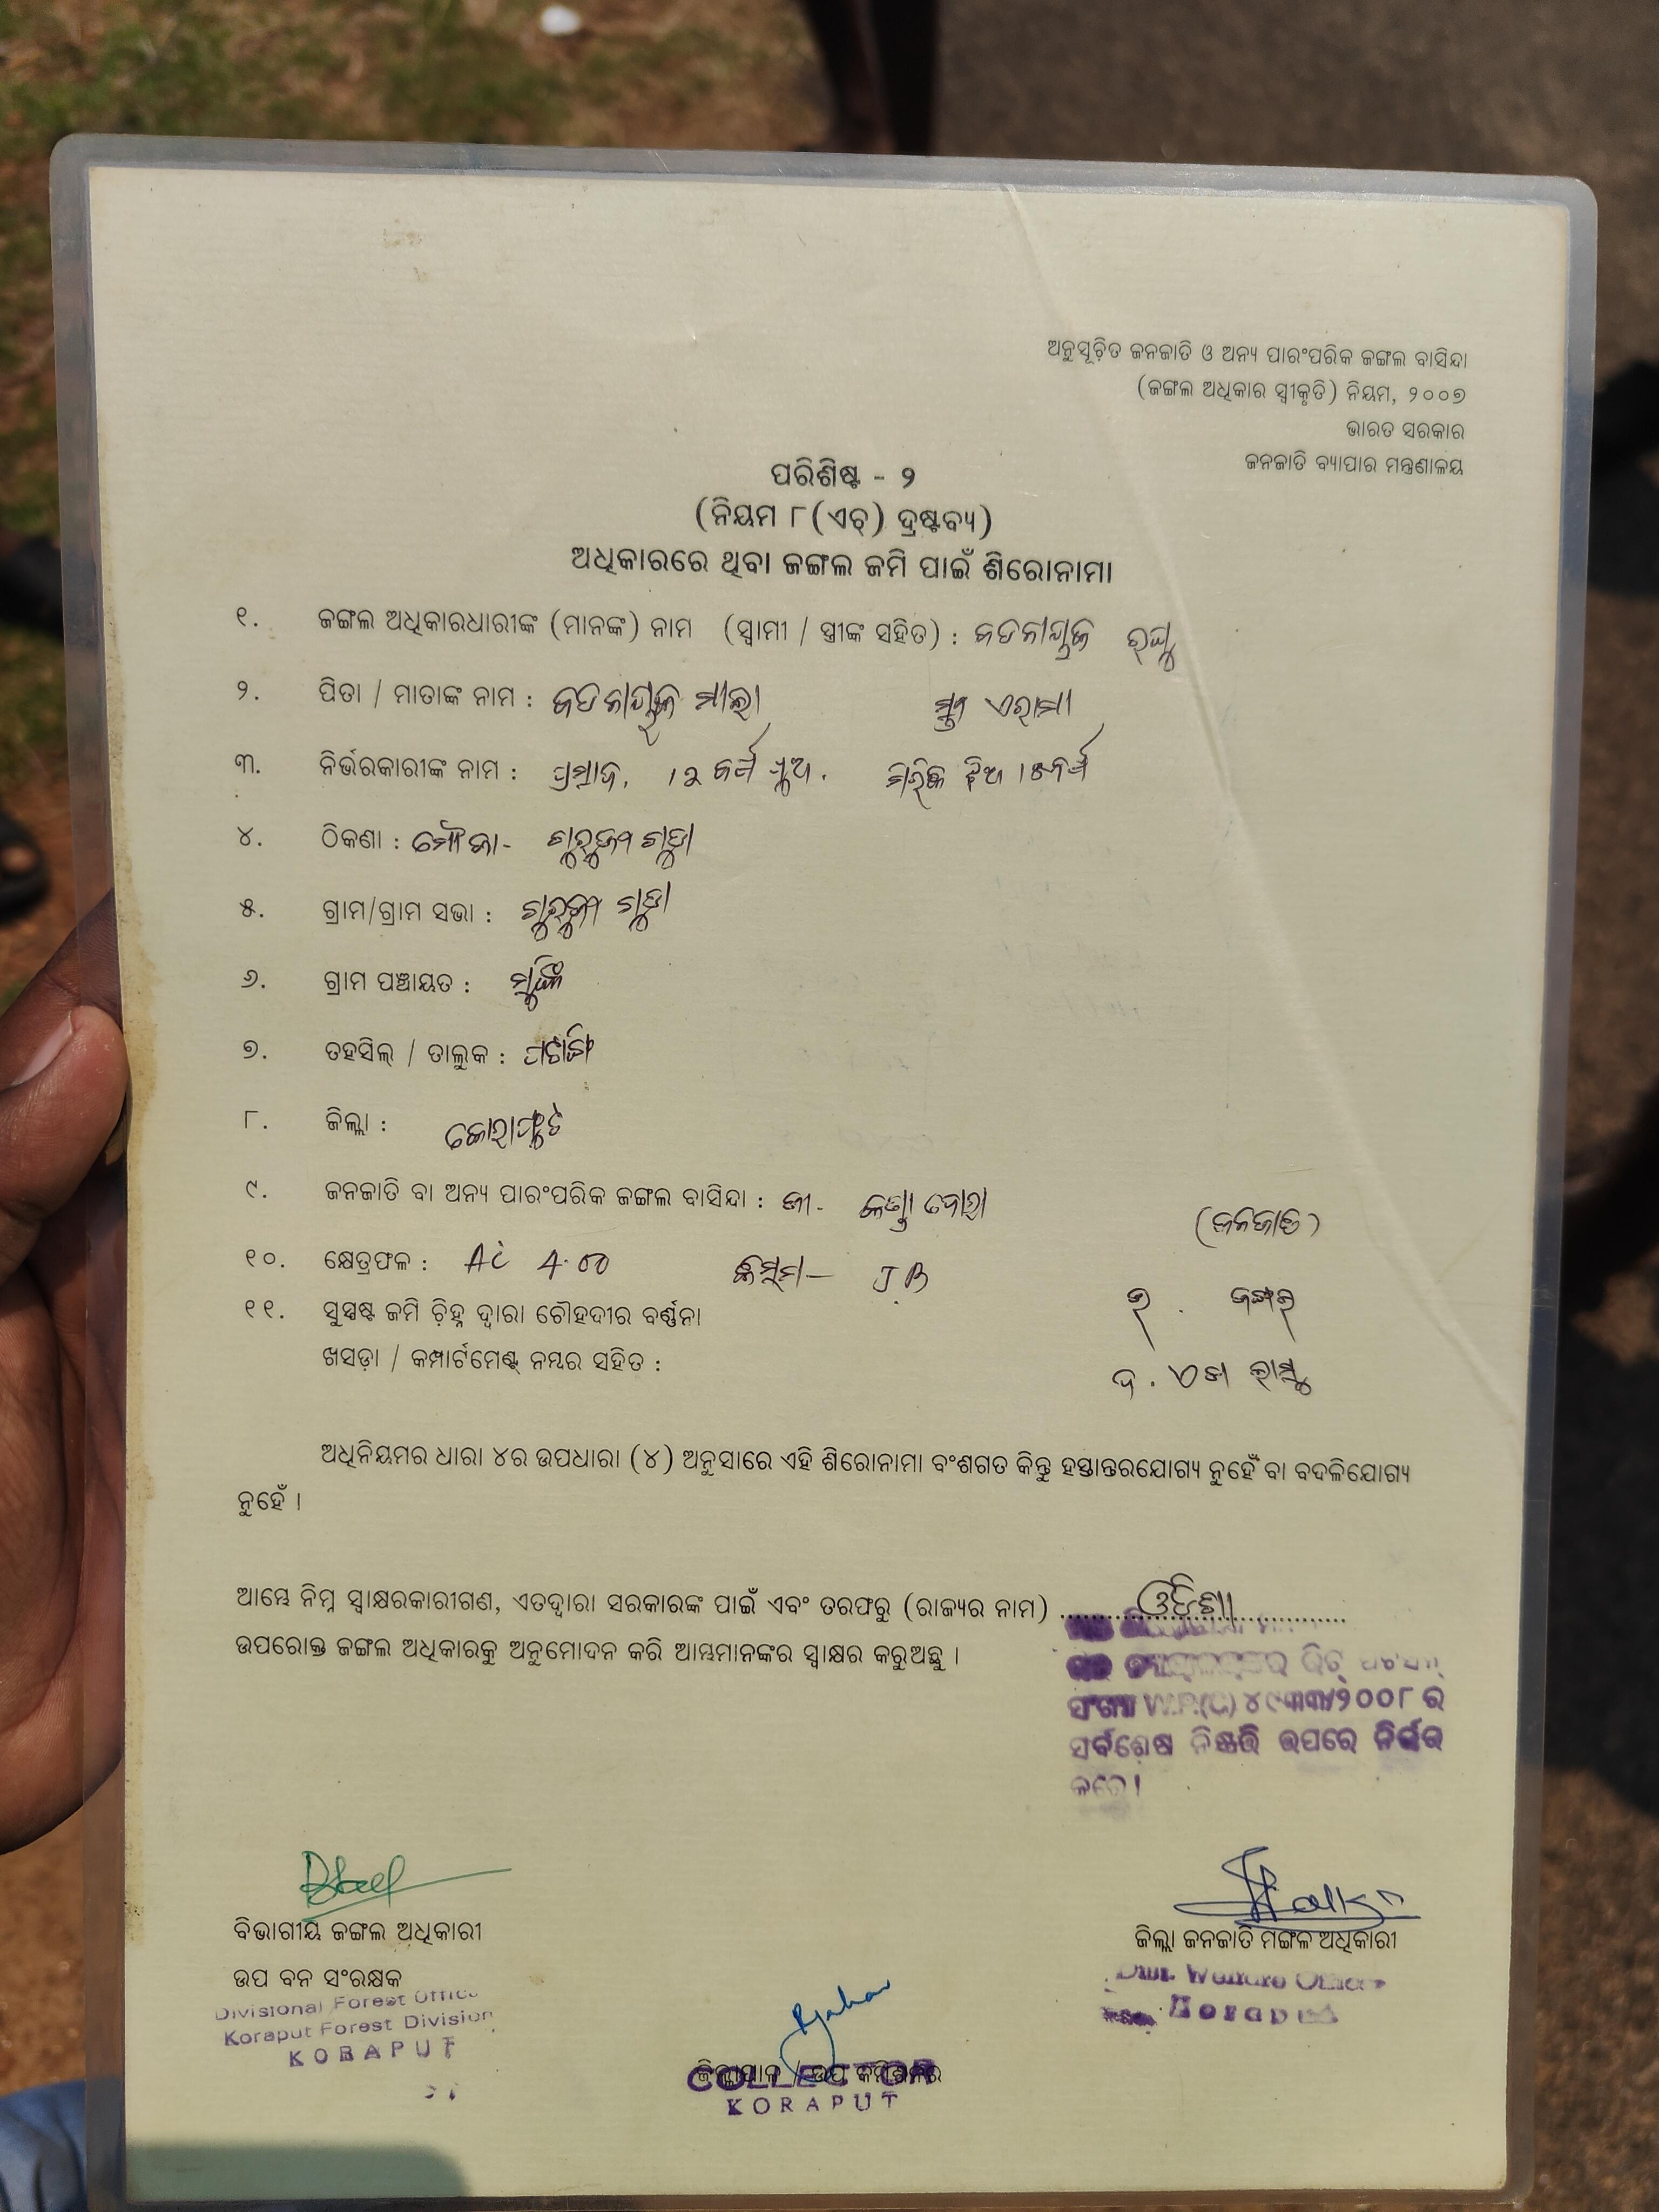 ଅନୁସୂଚିତ ଜନଜାତି ଓ ଅନ୍ୟ ପାରଂପରିକ ଜଙ୍ଗଲ ବାସିନ୍ଦା
(ଜଙ୍ଗଲ ଅଧିକାର ସ୍ୱୀକୃତି) ନିୟମ, ୨୦୦୭
ଭାରତ ସରକାର
ଜନଜାତି ବ୍ୟାପାର ମନ୍ତ୍ରଣାଳୟ
ପରିଶିଷ୍ଟ - ୨
(ନିୟମ ୮(ଏଚ୍) ଦ୍ରଷ୍ଟବ୍ୟ)
ଅଧିକାରରେ ଥିବା ଜଙ୍ଗଲ ଜମି ପାଇଁ ଶିରୋନାମା
୧. ଜଙ୍ଗଲ ଅଧିକାରଧାରୀଙ୍କ (ମାନଙ୍କ) ନାମ (ସ୍ୱାମୀ / ସ୍ତ୍ରୀଙ୍କ ସହିତ) :
୨. ପିତା / ମାତାଙ୍କ ନାମ :
୩. ନିର୍ଭରକାରୀଙ୍କ ନାମ : ୧୨ ବର୍ଷ ପୁଅ. ଝିଅ ୧୫ବର୍ଷ
୪. ଠିକଣା : ମୌଜା-
୫. ଗ୍ରାମ/ଗ୍ରାମ ସଭା :
୬. ଗ୍ରାମ ପଞ୍ଚାୟତ :
୭. ତହସିଲ୍ / ତାଲୁକ : ପଟାଙ୍ଗି
୮. ଜିଲ୍ଲା : କୋରାପୁଟ
୯. ଜନଜାତି ବା ଅନ୍ୟ ପାରଂପରିକ ଜଙ୍ଗଲ ବାସିନ୍ଦା : ଜା- ଦୋରା (ଜନଜାତି)
୧୦. କ୍ଷେତ୍ରଫଳ : AC 4.00 କିସମ— J B
୧୧. ସୁସ୍ପଷ୍ଟ ଜମି ଚିହ୍ନ ଦ୍ୱାରା ଚୌହଦୀର ବର୍ଣ୍ଣନା ଉ. ଜଙ୍ଗଲ
ଖସଡ଼ା / କମ୍ପାର୍ଟମେଣ୍ଟ୍ ନମ୍ବର ସହିତ : ଦ.
ଅଧିନିୟମର ଧାରା ୪ର ଉପଧାରା (୪) ଅନୁସାରେ ଏହି ଶିରୋନାମା ବଂଶଗତ କିନ୍ତୁ ହସ୍ତାନ୍ତରଯୋଗ୍ୟ ନୁହେଁ ବା ବଦଳିଯୋଗ୍ୟ
ନୁହେଁ ।
ଆମ୍ଭେ ନିମ୍ନ ସ୍ୱାକ୍ଷରକାରୀଗଣ, ଏତଦ୍ୱାରା ସରକାରଙ୍କ ପାଇଁ ଏବଂ ତରଫରୁ (ରାଜ୍ୟର ନାମ) ଓଡ଼ିଶା
ଉପରୋକ୍ତ ଜଙ୍ଗଲ ଅଧିକାରକୁ ଅନୁମୋଦନ କରି ଆମ୍ଭମାନଙ୍କର ସ୍ୱାକ୍ଷର କରୁଅଛୁ ।
ସଂଖ୍ୟା W.P.(C) ୪୯୩୩/୨୦୦୮ ର
ସର୍ବଶେଷ ନିଷ୍ପତ୍ତି ଉପରେ ନିର୍ଭର
କରେ।
ବିଭାଗୀୟ ଜଙ୍ଗଲ ଅଧିକାରୀ
ଉପ ବନ ସଂରକ୍ଷକ
Divisional Forest Office
Koraput Forest Division
KORAPUT
ଜିଲ୍ଲା ଜନଜାତି ମଙ୍ଗଳ ଅଧିକାରୀ
Distt. Welfare Officer
Koraput
ଜିଲ୍ଲାପାଳ / ଉପ କମିଶନର
COLLECTOR
KORAPUT